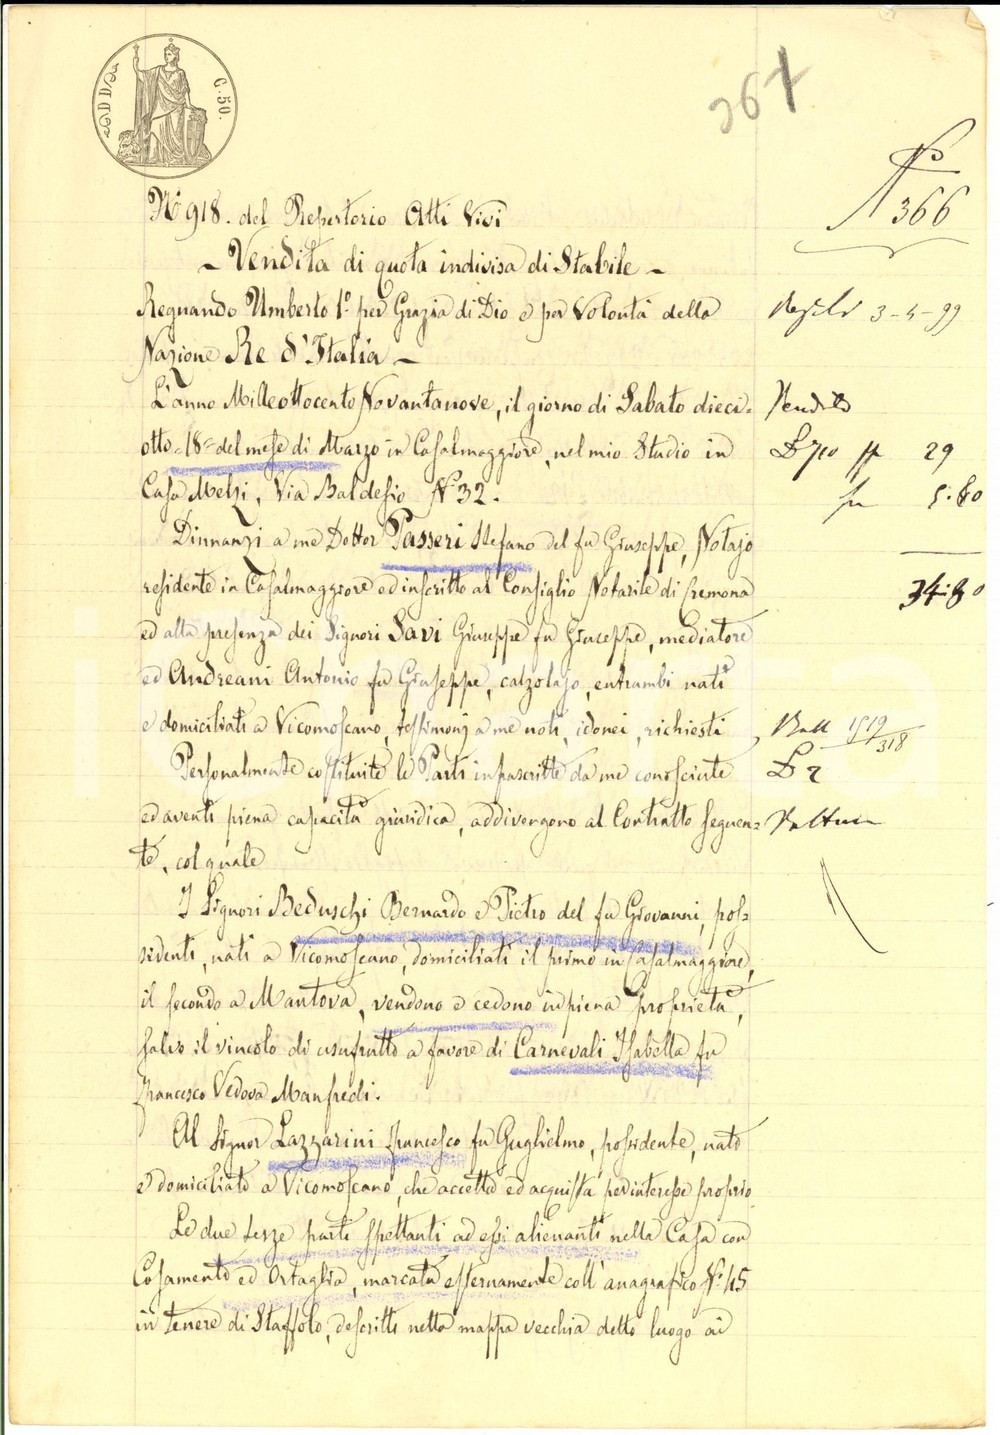 C. 50.
367
No
366
No 918. del Repertorio Atti Vivi
- Vendita di quota indivisa di Stabile -
Regnando Umberto 1o. per Grazia di Dio e per Volontà della
Nazione Re d'Italia -
L'anno Milleottocento Novantanove, il giorno di Sabato dieci-
otto - 18 - del mese di Marzo in Casalmaggiore, nel mio Studio in
Casa Melzi, Via Baldesio No 32.
Dinnanzi a me Dottor Passeri Stefano del fu Giuseppe, Notajo
residente in Casalmaggiore ed inscritto al Consiglio Notarile di Cremona
ed alla presenza dei Signori Savi Giuseppe fu Giuseppe, mediatore
ed Andreani Antonio fu Giuseppe, calzolajo, entrambi nati
e domiciliati a Vicomoscano, testimonj a me noti, idonei, richiesti
Personalmente costituite le Parti infrascritte da me conosciute
ed aventi piena capacità giuridica, addivengono al Contratto seguen-
te, col quale
I Signori Beduschi Bernardo e Pietro del fu Giovanni, pos-
sidenti, nati a Vicomoscano, domiciliati il primo in Casalmaggiore,
il secondo a Mantova, vendono e cedono in piena proprietà,
salvo il vincolo di usufrutto a favore di Carnevali Isabella fu
Francesco Vedova Manfredi.
Al Signor Lazzarini Francesco fu Guglielmo, possidente, nato
e domiciliato a Vicomoscano, che accetta ed acquista per interesse proprio
Le due terze parti spettanti ad essi alienanti nella Casa con
Casamento ed Ortaglia, marcata esternamente coll'anagrafico No. 45
in tenere di Staffolo, descritti nella mappa vecchia detto luogo ai
3-4-99
Vendita
29
5.80
34.80
1519/318